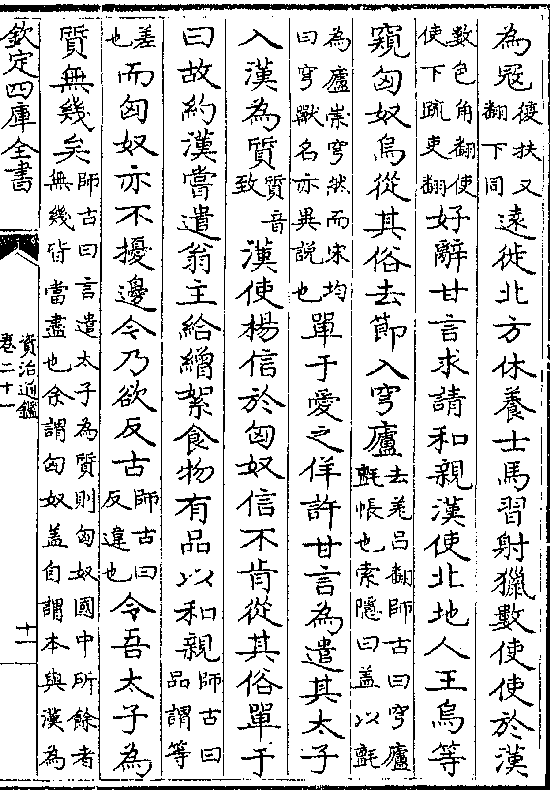 為冦復扶又翻下同遠徙北方休養士馬習射獵數使使於漢
數色角翻使使下疏吏翻好辭甘言求請和親漢使北地人王烏等
窺匈奴烏從其俗去節入穹廬去羌呂翻師古曰穹廬氈帳也索隱曰蓋以氈
為廬崇穹然而宋均曰穹獸名亦異說也單于愛之佯許甘言為遣其太子
入漢為質質音致漢使楊信於匈奴信不肯從其俗單于
曰故約漢嘗遣翁主給繒絮食物有品以和親師古曰品謂等
差也而匈奴亦不擾邊今乃欲反古師古曰反違也令吾太子為
質無幾矣師古曰言遣太子為質則匈奴國中所餘者無幾皆當盡也余謂匈奴蓋自謂本與漢為
欽定四庫全書
資治通鑑
卷二十一
十一